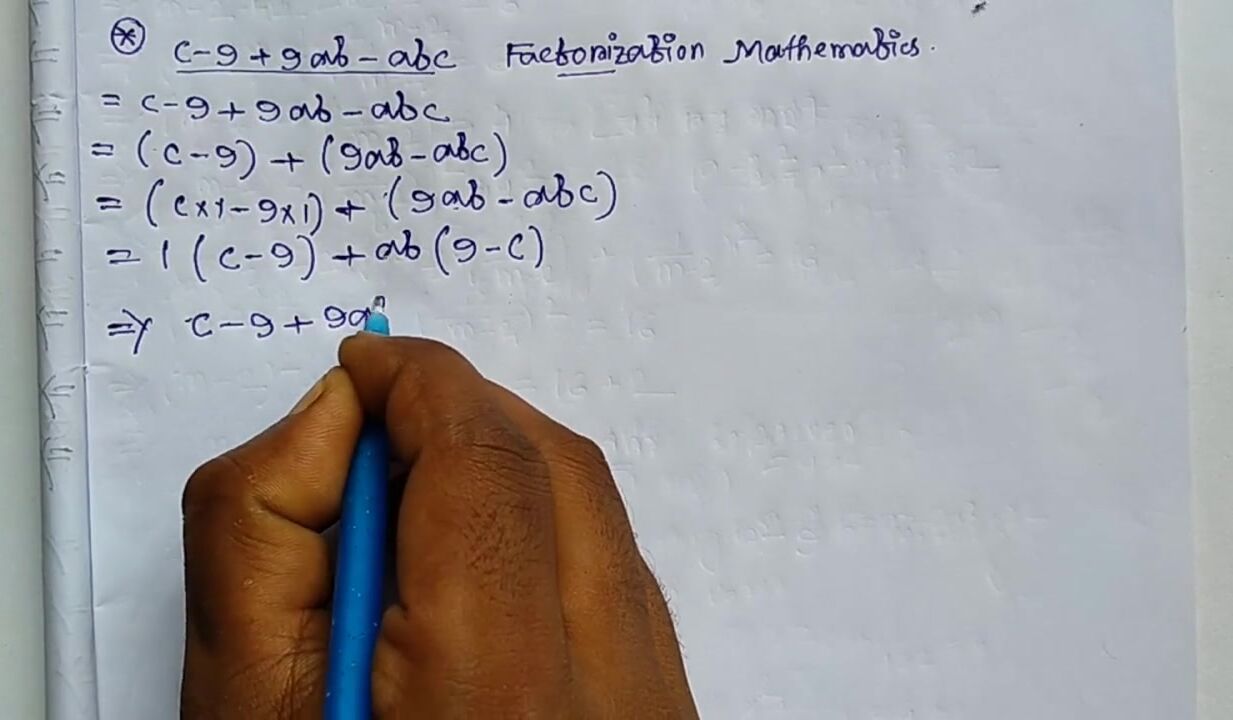 * c-9+9ab-abc Factorization Mathematics.
= c-9+9ab-abc
= (c-9)+(9ab-abc)
= (c×1-9×1)+(9ab-abc)
= 1(c-9)+ab(9-c)
=> c-9+9a